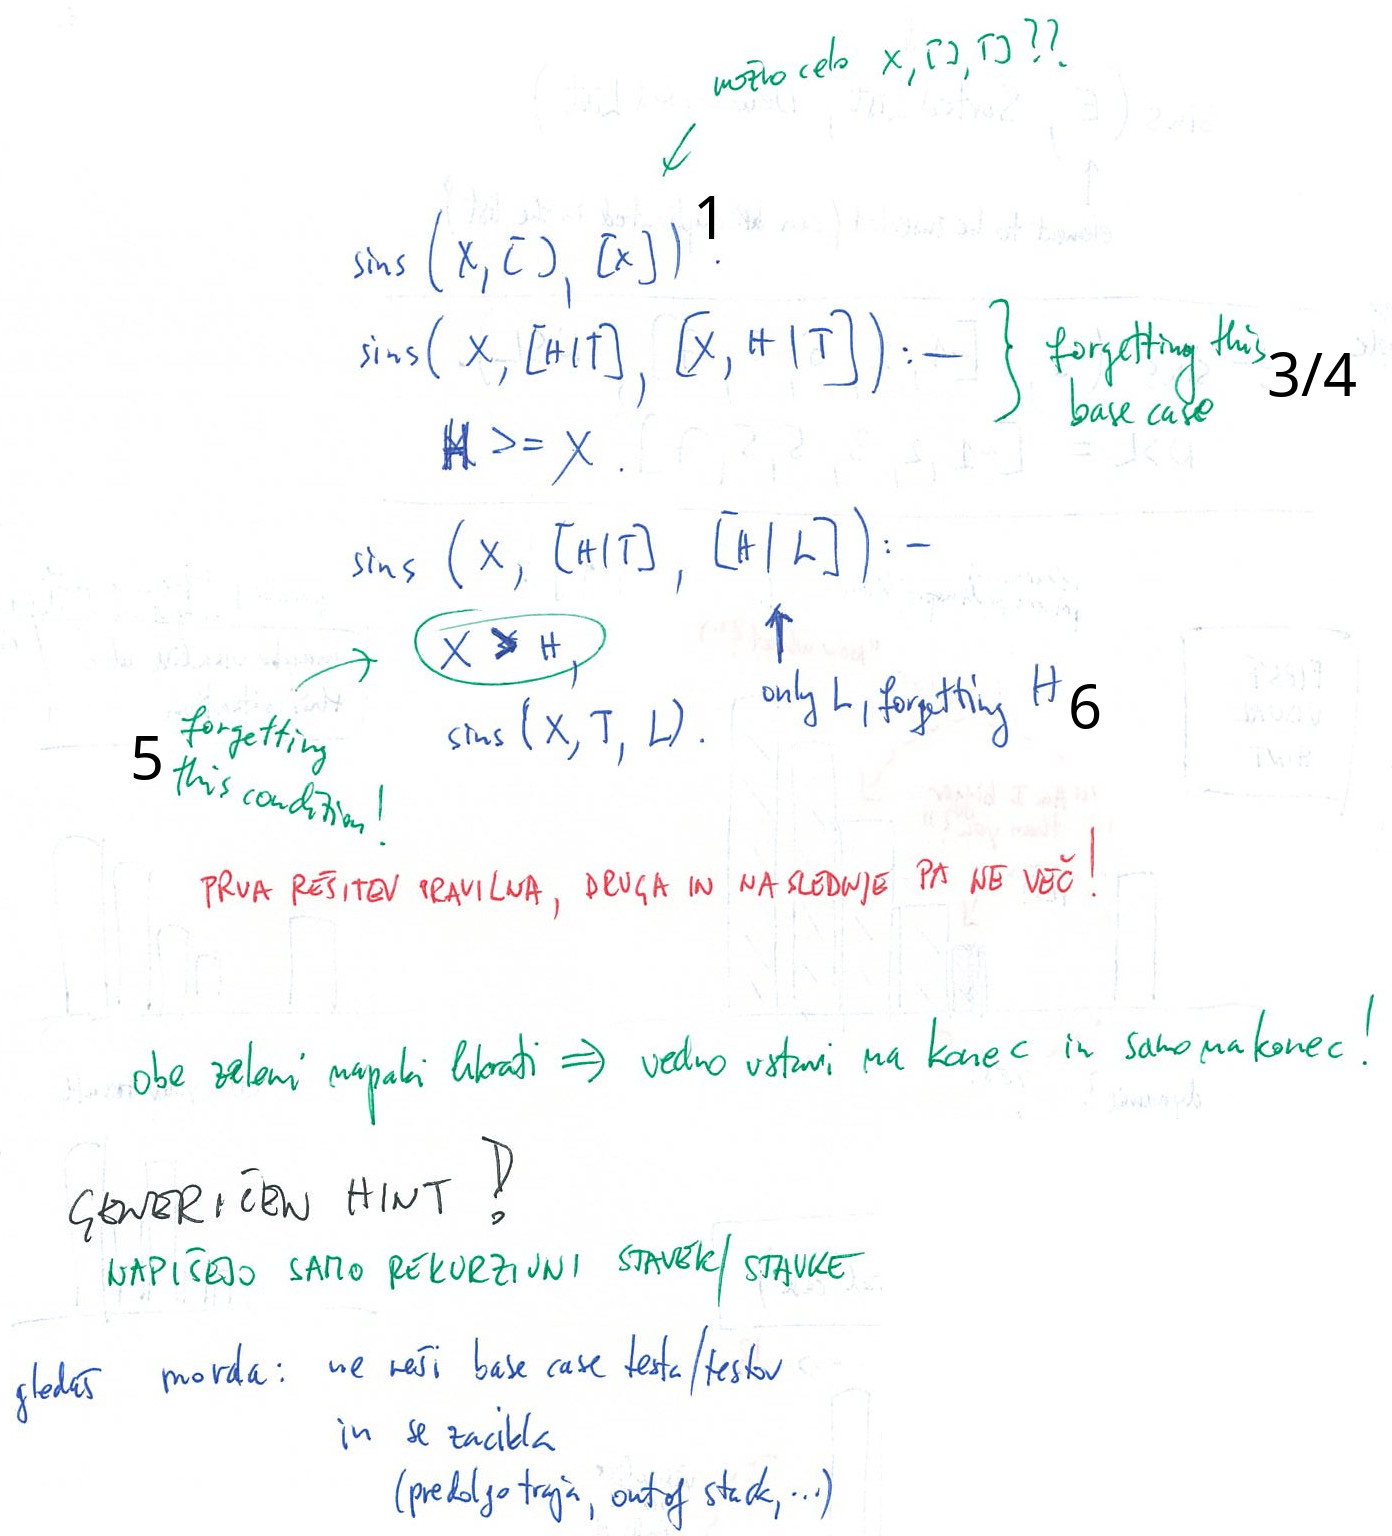 možno celo X, [], []??
sins (X, [], [X]). 1
sins( X, [H|T], [X, H|T]) :- } forgetting this 3/4
base case
H >= X .
sins (X, [H|T], [H|L]) :-
X > H,
only L, forgetting H 6
sins (X, T, L).
5 forgetting
this condition!
PRVA REŠITEV PRAVILNA, DRUGA IN NASLEDNJE PA NE VEČ!
obe zeleni napaki hkrati => vedno vstavi na konec in samo na konec!
GENERIČEN HINT!
NAPIŠEJO SAMO REKURZIVNI STAVEK/STAVKE
gledaš morda: ne reši base case testa/testov
in se zacikla
(predolgo traja, out of stack, ...)